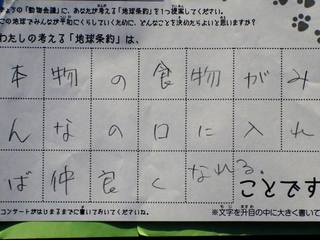 きょうの「動物会議」に、あなたが考える「地球条約」を1つ提案してください。
この地球でみんなが平和にくらしていくために、どんなことを決めたらよいと思いますか?
わたしの考える「地球条約」は、
本物の食物がみ
んなの口に入れ
ば仲良くなれる。
ことです
コンサートがはじまるまでに書いておいてくださいね。
※文字を升目の中に大きく書いて